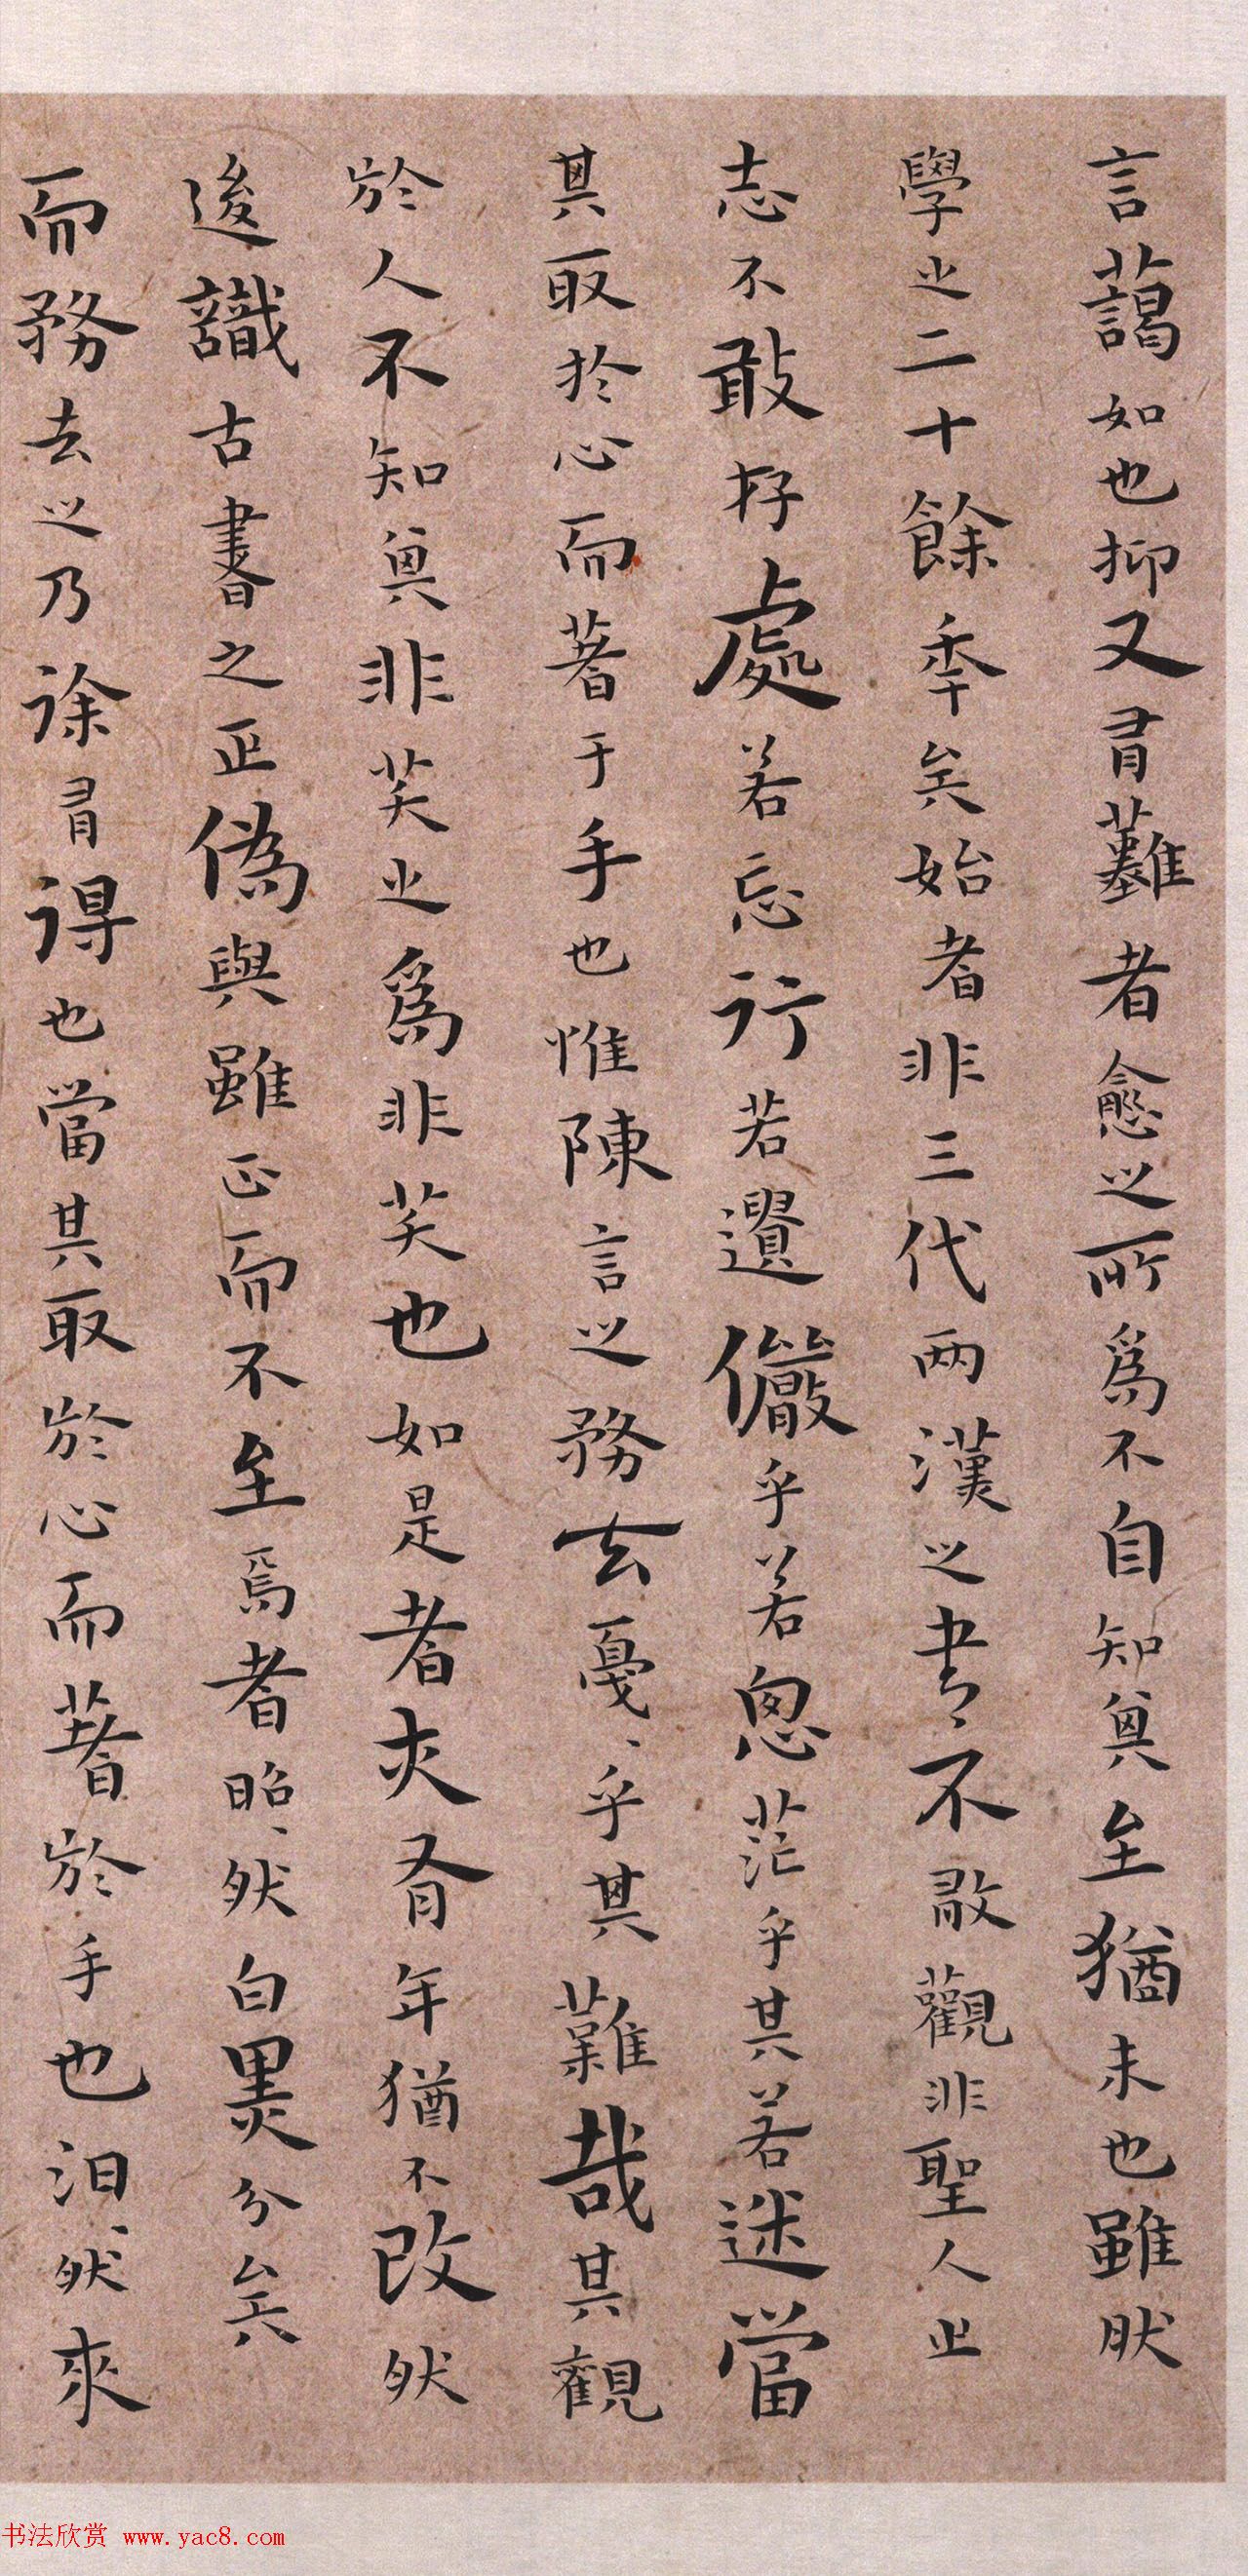 言藹如也抑又有難者愈之所為不自知其至猶未也雖然
學之二十餘年矣始者非三代兩漢之書、不敢觀非聖人之
志不敢存處若忘行若遺儼乎若思茫乎其若迷當
其取於心而著于手也惟陳言之務去戛、乎其難哉其觀
於人不知其非笑之為非笑也如是者亦有年猶不改然
後識古書之正偽與雖正而不至焉者昭、然白黑分矣
而務去之乃徐有得也當其取於心而著於手也汩、然來
书法欣赏 www.yac8.com